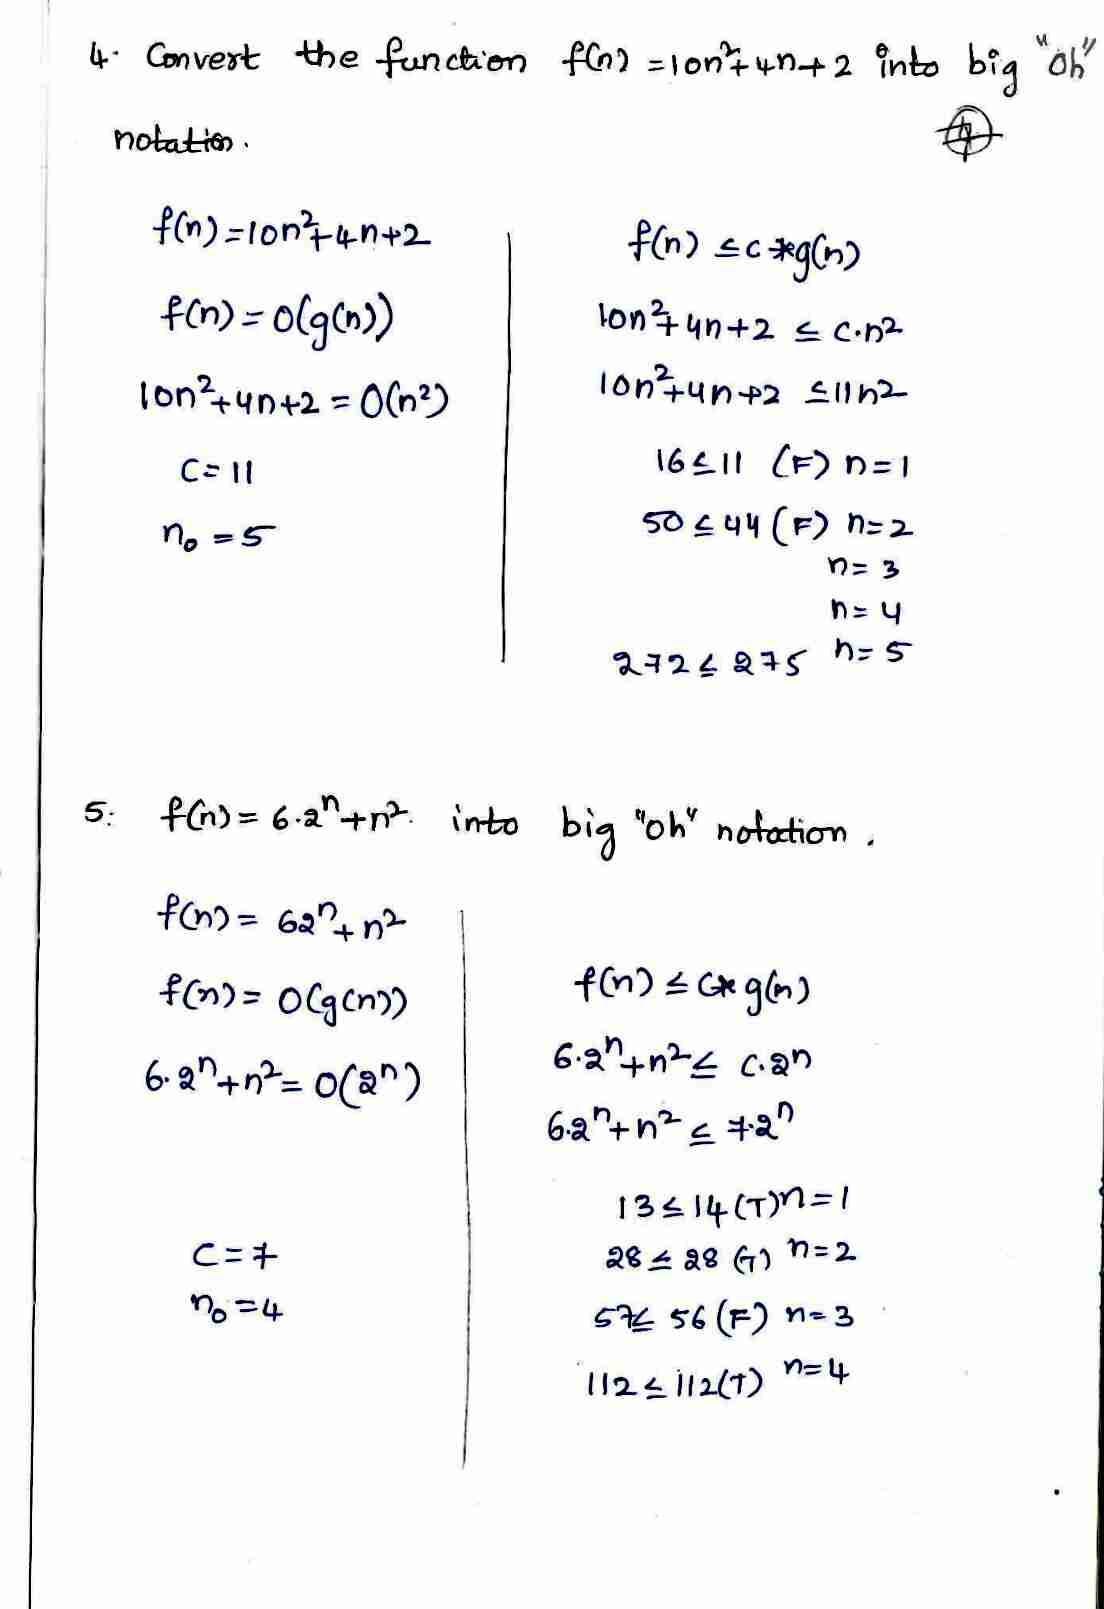 4. Convert the function f(n) = 10n²+4n+2 into big "Oh"
notation.
f(n) = 10n²+4n+2
f(n) = O(g(n))
10n²+4n+2 = O(n²)
C = 11
n₀ = 5
f(n) ≤ c*g(n)
10n²+4n+2 ≤ c·n²
10n²+4n+2 ≤ 11n²
16 ≤ 11 (F) n=1
50 ≤ 44 (F) n=2
n=3
n=4
272 ≤ 275 n=5
5: f(n) = 6·2ⁿ+n². into big "oh" notation.
f(n) = 62ⁿ+n²
f(n) = O(g(n))
6·2ⁿ+n² = O(2ⁿ)
C = 7
n₀ = 4
f(n) ≤ C* g(n)
6·2ⁿ+n² ≤ c·2ⁿ
6·2ⁿ+n² ≤ 7·2ⁿ
13 ≤ 14 (T) n=1
28 ≤ 28 (T) n=2
57 ≤ 56 (F) n=3
112 ≤ 112 (T) n=4